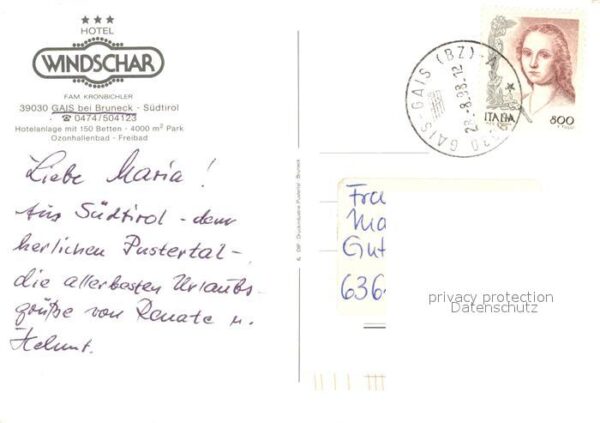 ★★★
HOTEL
WINDSCHAR
FAM. KRONBICHLER
39030 GAIS bei Bruneck - Südtirol
☎ 0474/504123
Hotelanlage mit 150 Betten - 4000 m² Park
Ozonhallenbad - Freibad
Liebe Maria!
Aus Südtirol - dem
herlichen Pustertal -
die allerbesten Urlaubs-
grüße von Renate u.
Helmut.
GAIS-GAIS (BZ)-A
28.-8.98-12
ITALIA
800
Fra
Ma
Gut
636
privacy protection
Datenschutz